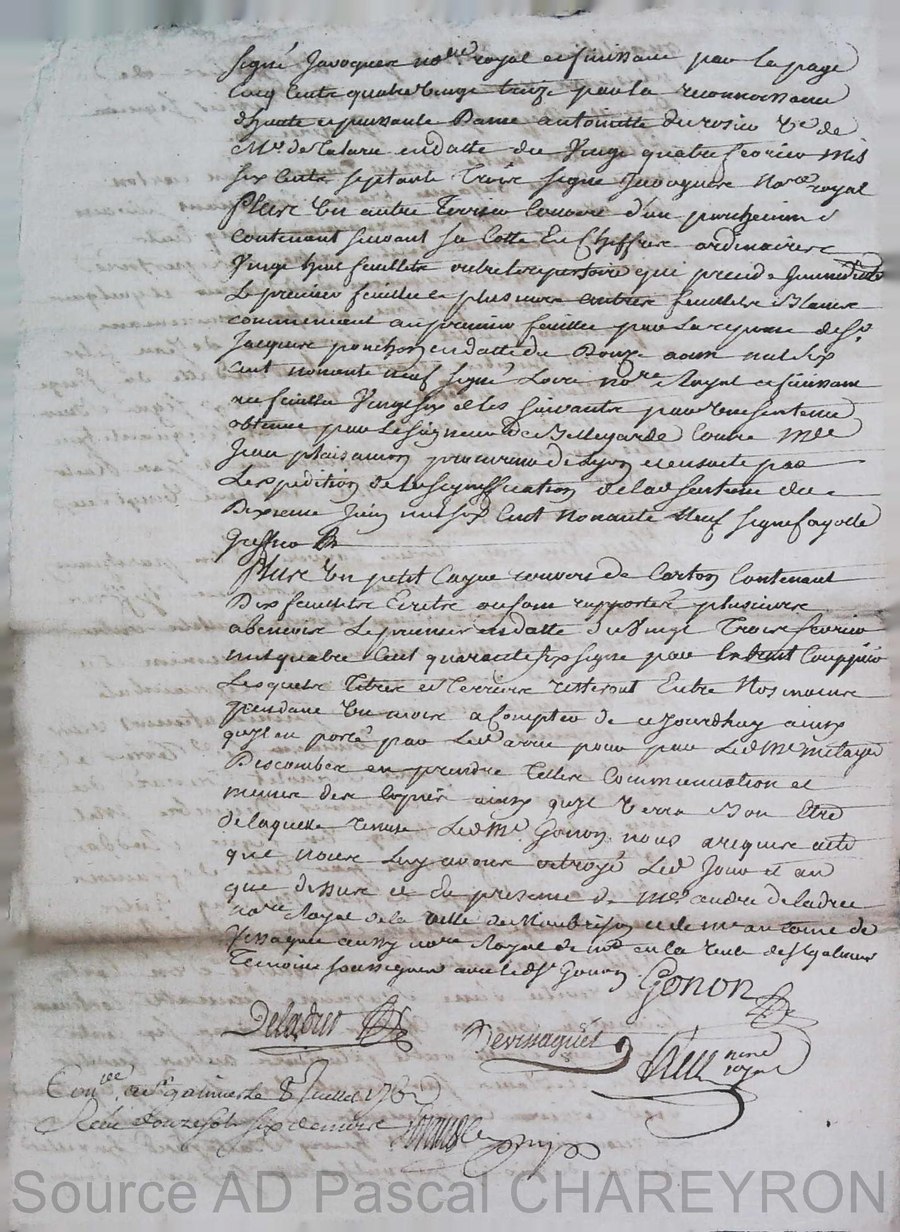 signé Javogues no.re royal et finissant par la page
Cinq Cents quatre vingt treize par la reconnoissance
d'haute et puissante Dame antoinette du rosier Ve de
Mr de talaru en datte du Vingt quatre fevrier Mil
six cents septante Troise signé Javogues No.re royal
Pluse Un autre Terrier Couvert d'un parchemin
Contenant suivant sa Cotte En Chiffre ordinairese
Vingt huit feuillets outre le repertoire qui prend
Le premier feuillet et plusieurs autres feuillets Blancs
commencant au premier feuillet par La reponse de Sr
Jacques ponchon en datte du Douze aoust mil six
Cent nonante neuf signé Lore no.re Royal et finissant
au feuillet Vingt six et les suivants par Une sentence
obtenue par Le seigneur de Bellegarde Contre Me
Jean plaisancon procureur de Lyon et ensuite par
L'expedition de la signiffication de lad sentence du
Dixieme Juin mil six Cent Nonante Neuf signe fayolle
Greffier
Pluse Un petit Cayer couvert de Carton Contenant
Dix feuillets Ecrits ou sont rapportés plusieurs
abenevis Le premier en datte du Vingt Troise fevrier
mil quatre Cent quarante six signé par
Lesquels Titres et Terriers resteront Entre Nos mains
pendant Un mois a Compter de ce jourdhuy ainsy
quyl est porté par Led arret pour par Led Me metayer
Descombes en prendre Telles Communication et
mesmes des Copies ainsy quyl Verra Bon Etre
de laquelle remise Led Me Gonon nous a requis acte
que nous Luy avons octroyé Led Jour et an
que dessus et en presence de Me andre Deladret
no.re Royal de la Ville de Montbrison et de Me antoine de
Vissaguet aussy no.re Royal de md en la Ville de St galmier
Temoins soussignes avec le d Sr Gonon Gonon
Deladret Devissaguet
nore
royal
Con.lée a St galmier le 8 Juillet 176
Recu douze sols six deniers
Source AD Pascal CHAREYRON